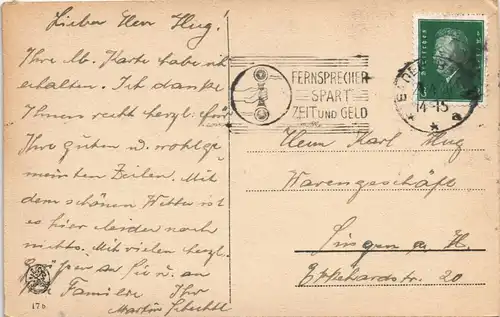 Lieber Herr Hug!
Ihre lb. Karte habe ich
erhalten. Ich danke
Ihnen recht herzl. für
Ihre guten u. wohlge-
meinten Zeilen. Mit
dem schönen Wetter ist
es hier leider noch
nichts. Mit vielen herzl.
Grüßen an Sie u. an
Ihre Familie Ihr
Martin
17b
FERNSPRECHER
SPART
ZEIT UND GELD
14-15
a
Herrn Karl Hug
Warengeschäft
Singen a. H.
Ekkehardstr. 20